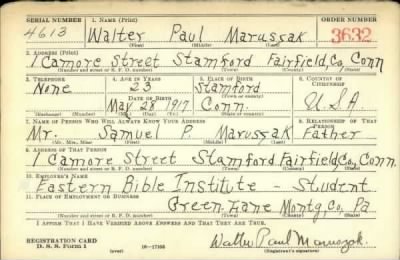 SERIAL NUMBER 1. NAME (Print) ORDER NUMBER
4613 Walter Paul Maruszak 3632
(First) (Middle) (Last)
2. ADDRESS (Print)
1 Camore Street Stamford Fairfield, Co, Conn
(Number and street or R. F. D. number) (Town) (County) (State)
3. TELEPHONE 4. AGE IN YEARS 5. PLACE OF BIRTH 6. COUNTRY OF CITIZENSHIP
None 23 Stamford
DATE OF BIRTH (Town or county)
May 28 1917 Conn. U.S.A.
(Exchange) (Number) (Mo.) (Day) (Yr.) (State or country)
7. NAME OF PERSON WHO WILL ALWAYS KNOW YOUR ADDRESS 8. RELATIONSHIP OF THAT PERSON
Mr. Samuel P. Maruszak Father
(Mr., Mrs., Miss) (First) (Middle) (Last)
9. ADDRESS OF THAT PERSON
1 Camore Street Stamford Fairfield, Co, Conn.
(Number and street or R. F. D. number) (Town) (County) (State)
10. EMPLOYER'S NAME
Eastern Bible Institute - Student
11. PLACE OF EMPLOYMENT OR BUSINESS
Green Lane Montg, Co, Pa
(Number and street or R. F. D. number) (Town) (County) (State)
I AFFIRM THAT I HAVE VERIFIED ABOVE ANSWERS AND THAT THEY ARE TRUE.
REGISTRATION CARD
D. S. S. Form 1 (over) 16-17105 Walter Paul Maruszak
(Registrant's signature)